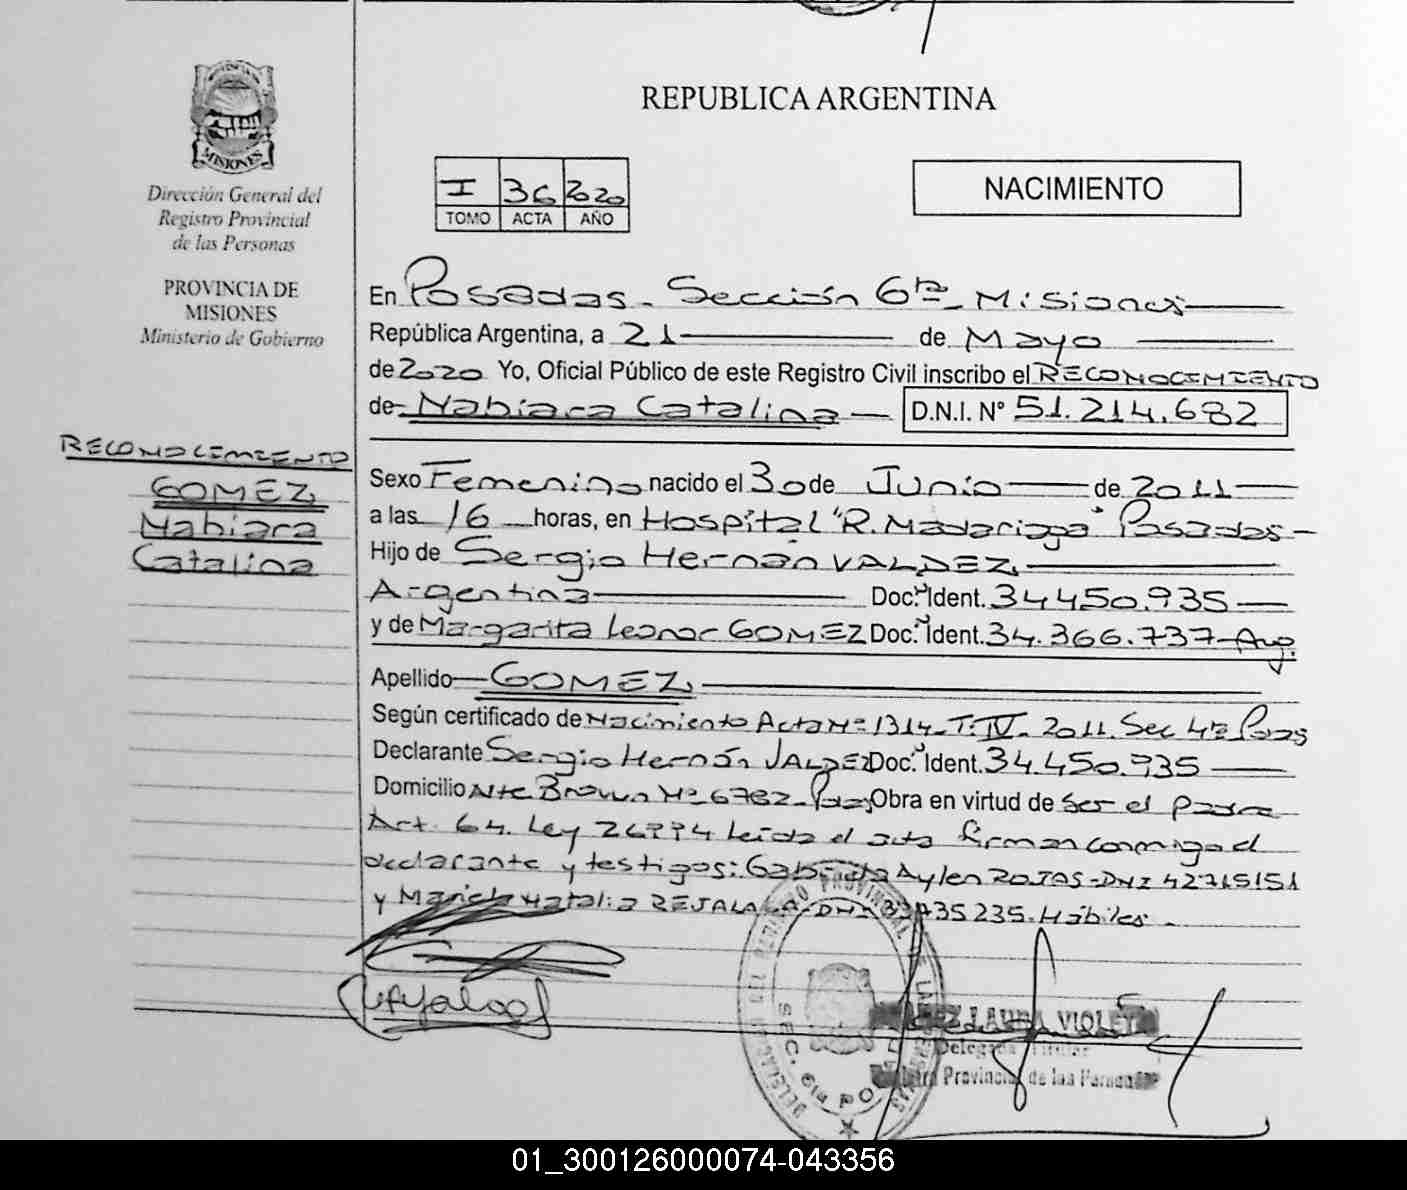 PROVINCIA DE
MISIONES
Dirección General del
Registro Provincial
de las Personas
PROVINCIA DE
MISIONES
Ministerio de Gobierno
RECONOCIMIENTO
GOMEZ
Nahiara
Catalina
REPUBLICA ARGENTINA
I 36 2020
TOMO ACTA AÑO
NACIMIENTO
En Posadas - Sección 6ta - Misiones
República Argentina, a 21 de Mayo
de 2020 Yo, Oficial Público de este Registro Civil inscribo el RECONOCIMIENTO
de Nahiara Catalina D.N.I. N° 51.214.682
Sexo Femenino nacido el 30 de Junio de 2011
a las 16 horas, en Hospital "R. Madariaga" Posadas -
Hijo de Sergio Hernán VALDEZ
Argentina Doc. Ident. 34.450.935
y de Margarita Leonor GOMEZ Doc. Ident. 34.366.737 - Arg.
Apellido GOMEZ
Según certificado de Nacimiento Acta Nº 1314 - T: IV - 2011. Sec 4ta Pdas
Declarante Sergio Hernán VALDEZ Doc. Ident. 34.450.935
Domicilio Alte Brown Nº 6782 - Pdas Obra en virtud de ser el padre
Art. 64. Ley 26994 leída el acta firman conmigo el
declarante y testigos: Gabriela Aylen ROJAS - DNI 42715151
y Mariela Natalia REJALAGA - DNI 235. Hábiles -
LAURA VIOLETA
Delegada Titular
Provincial de las Personas
SEC. 6ta PO
01_300126000074-043356